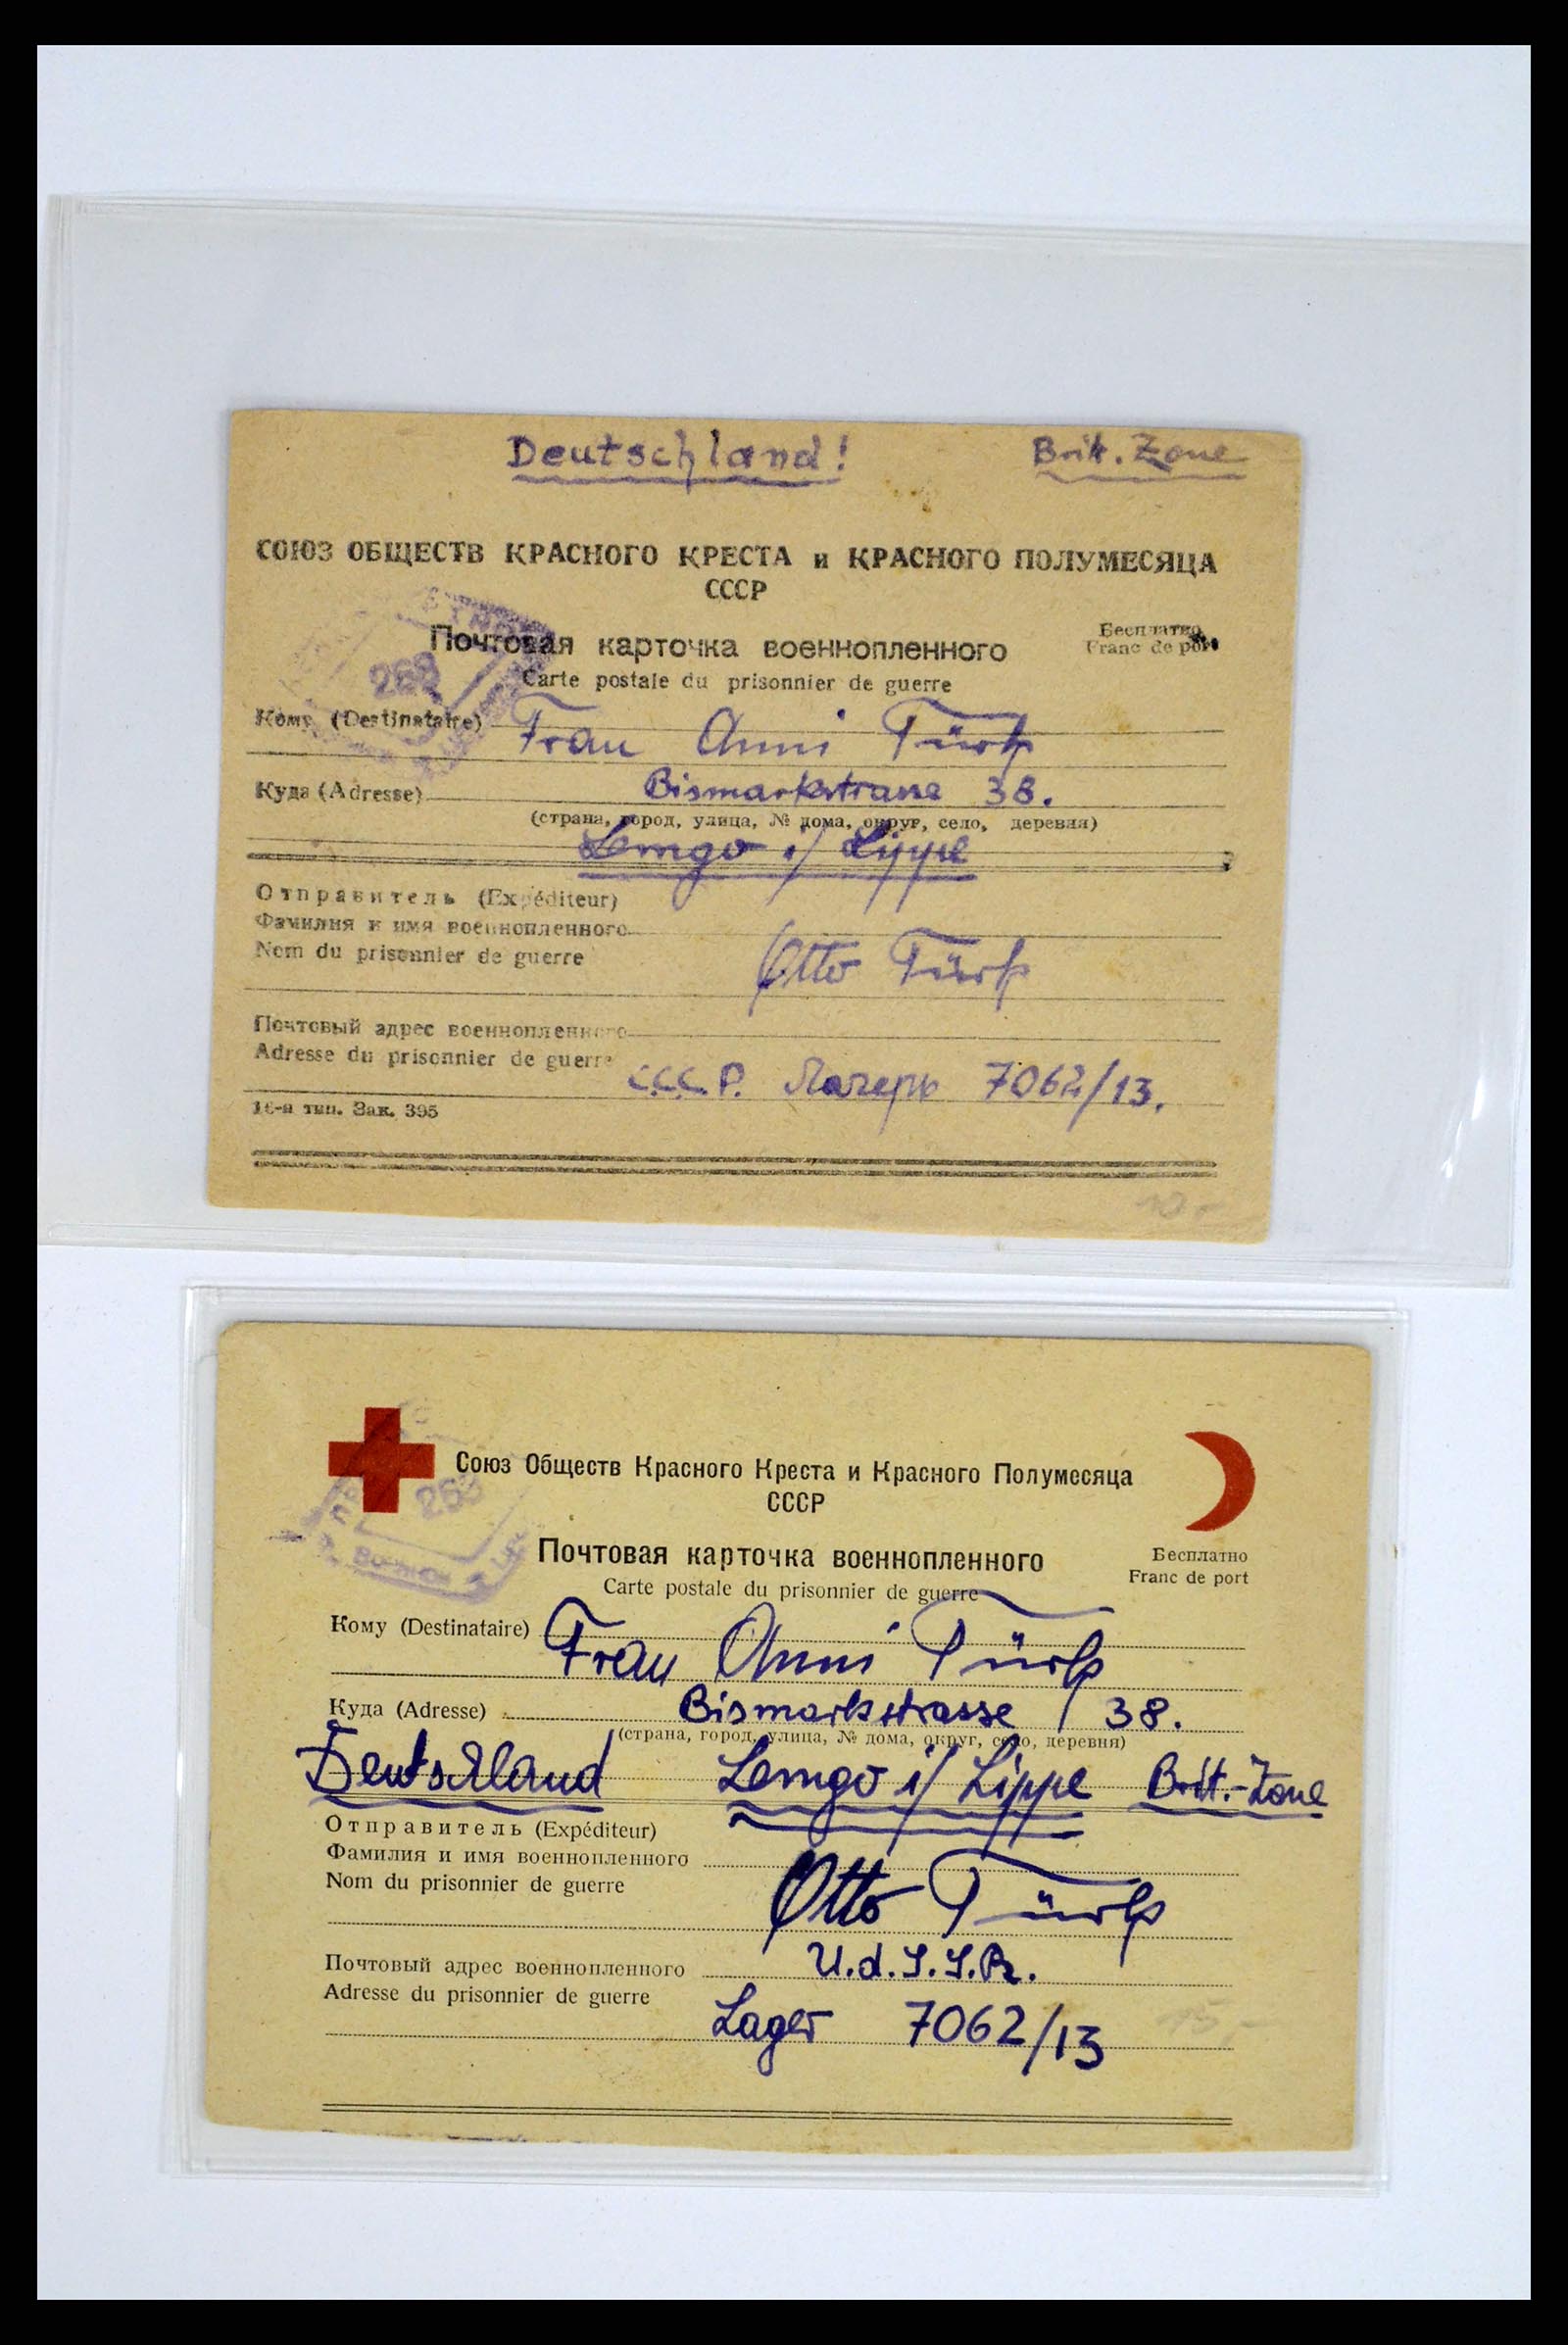 Deutschland! Brit. Zone
СОЮЗ ОБЩЕСТВ КРАСНОГО КРЕСТА и КРАСНОГО ПОЛУМЕСЯЦА
СССР
Почтовая карточка военнопленного
Бесплатно
Franc de port
Carte postale du prisonnier de guerre
268
Кому (Destinataire) Frau Anni Türk
Куда (Adresse) Bismarkstrasse 38.
(страна, город, улица, № дома, округ, село, деревня)
Lemgo i/ Lippe
Отправитель (Expéditeur)
Фамилия и имя военнопленного
Nom du prisonnier de guerre
Otto Türk
Почтовый адрес военнопленного
Adresse du prisonnier de guerre
C.C.C.P. Лагерь 7062/13.
16-я тип. Зак. 395
10-
Союз Обществ Красного Креста и Красного Полумесяца
СССР
Почтовая карточка военнопленного
Бесплатно
Franc de port
Carte postale du prisonnier de guerre
Кому (Destinataire) Frau Anni Türk
Куда (Adresse) Bismarkstrasse / 38.
(страна, город, улица, № дома, округ, село, деревня)
Deutschland Lemgo i/ Lippe Brit.-Zone
Отправитель (Expéditeur)
Фамилия и имя военнопленного
Nom du prisonnier de guerre
Otto Türk
Почтовый адрес военнопленного U.d.S.S.R.
Adresse du prisonnier de guerre
Lager 7062/13
15,-